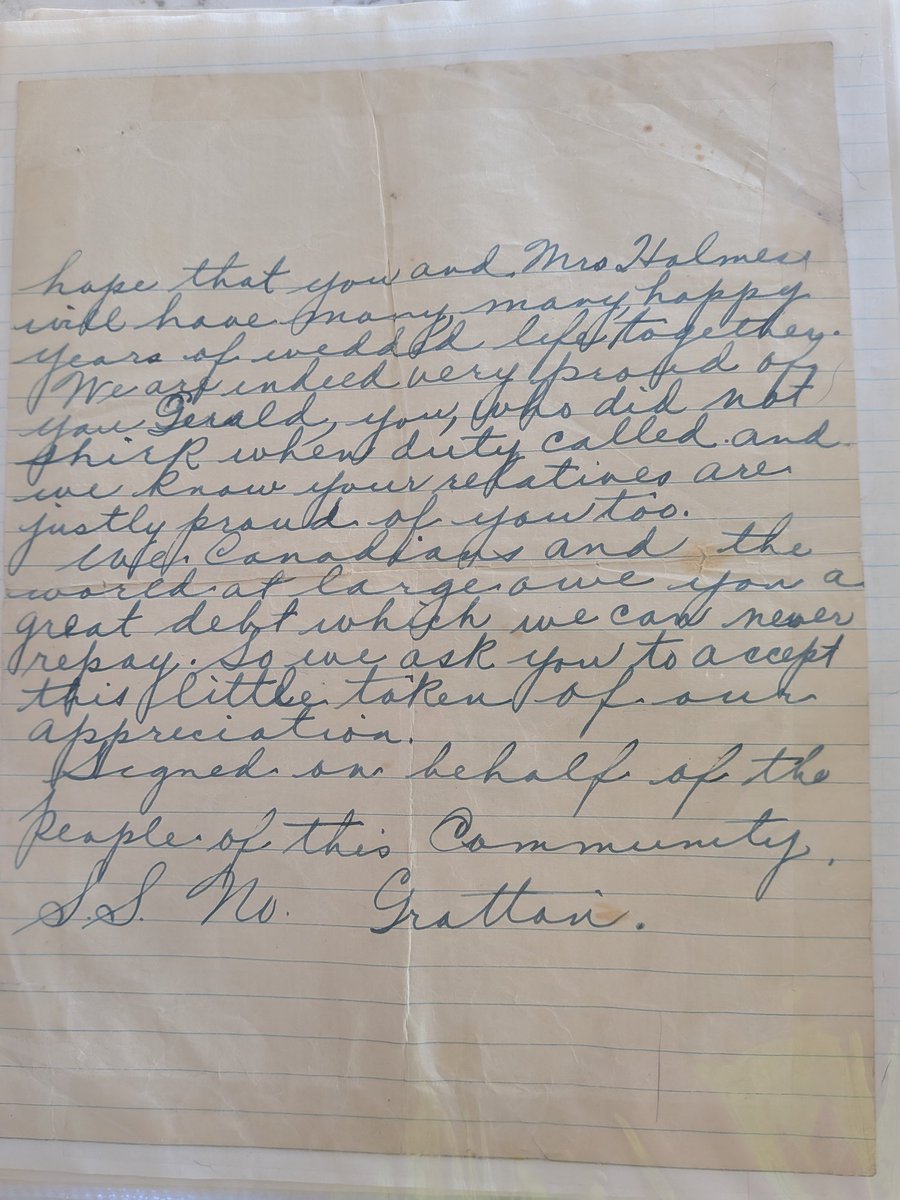 hope that you and Mrs Holmes
will have many, many, happy
years of wedded life together.
We are indeed very proud of
you Gerald, you, who did not
shirk when duty called and
we know your relatives are
justly proud of you too.
We Canadians and the
world at large owe you a
great debt which we can never
repay. So we ask you to accept
this little token of our
appreciation.
Signed on behalf of the
people of this Community.
S.S. No. Grattan.